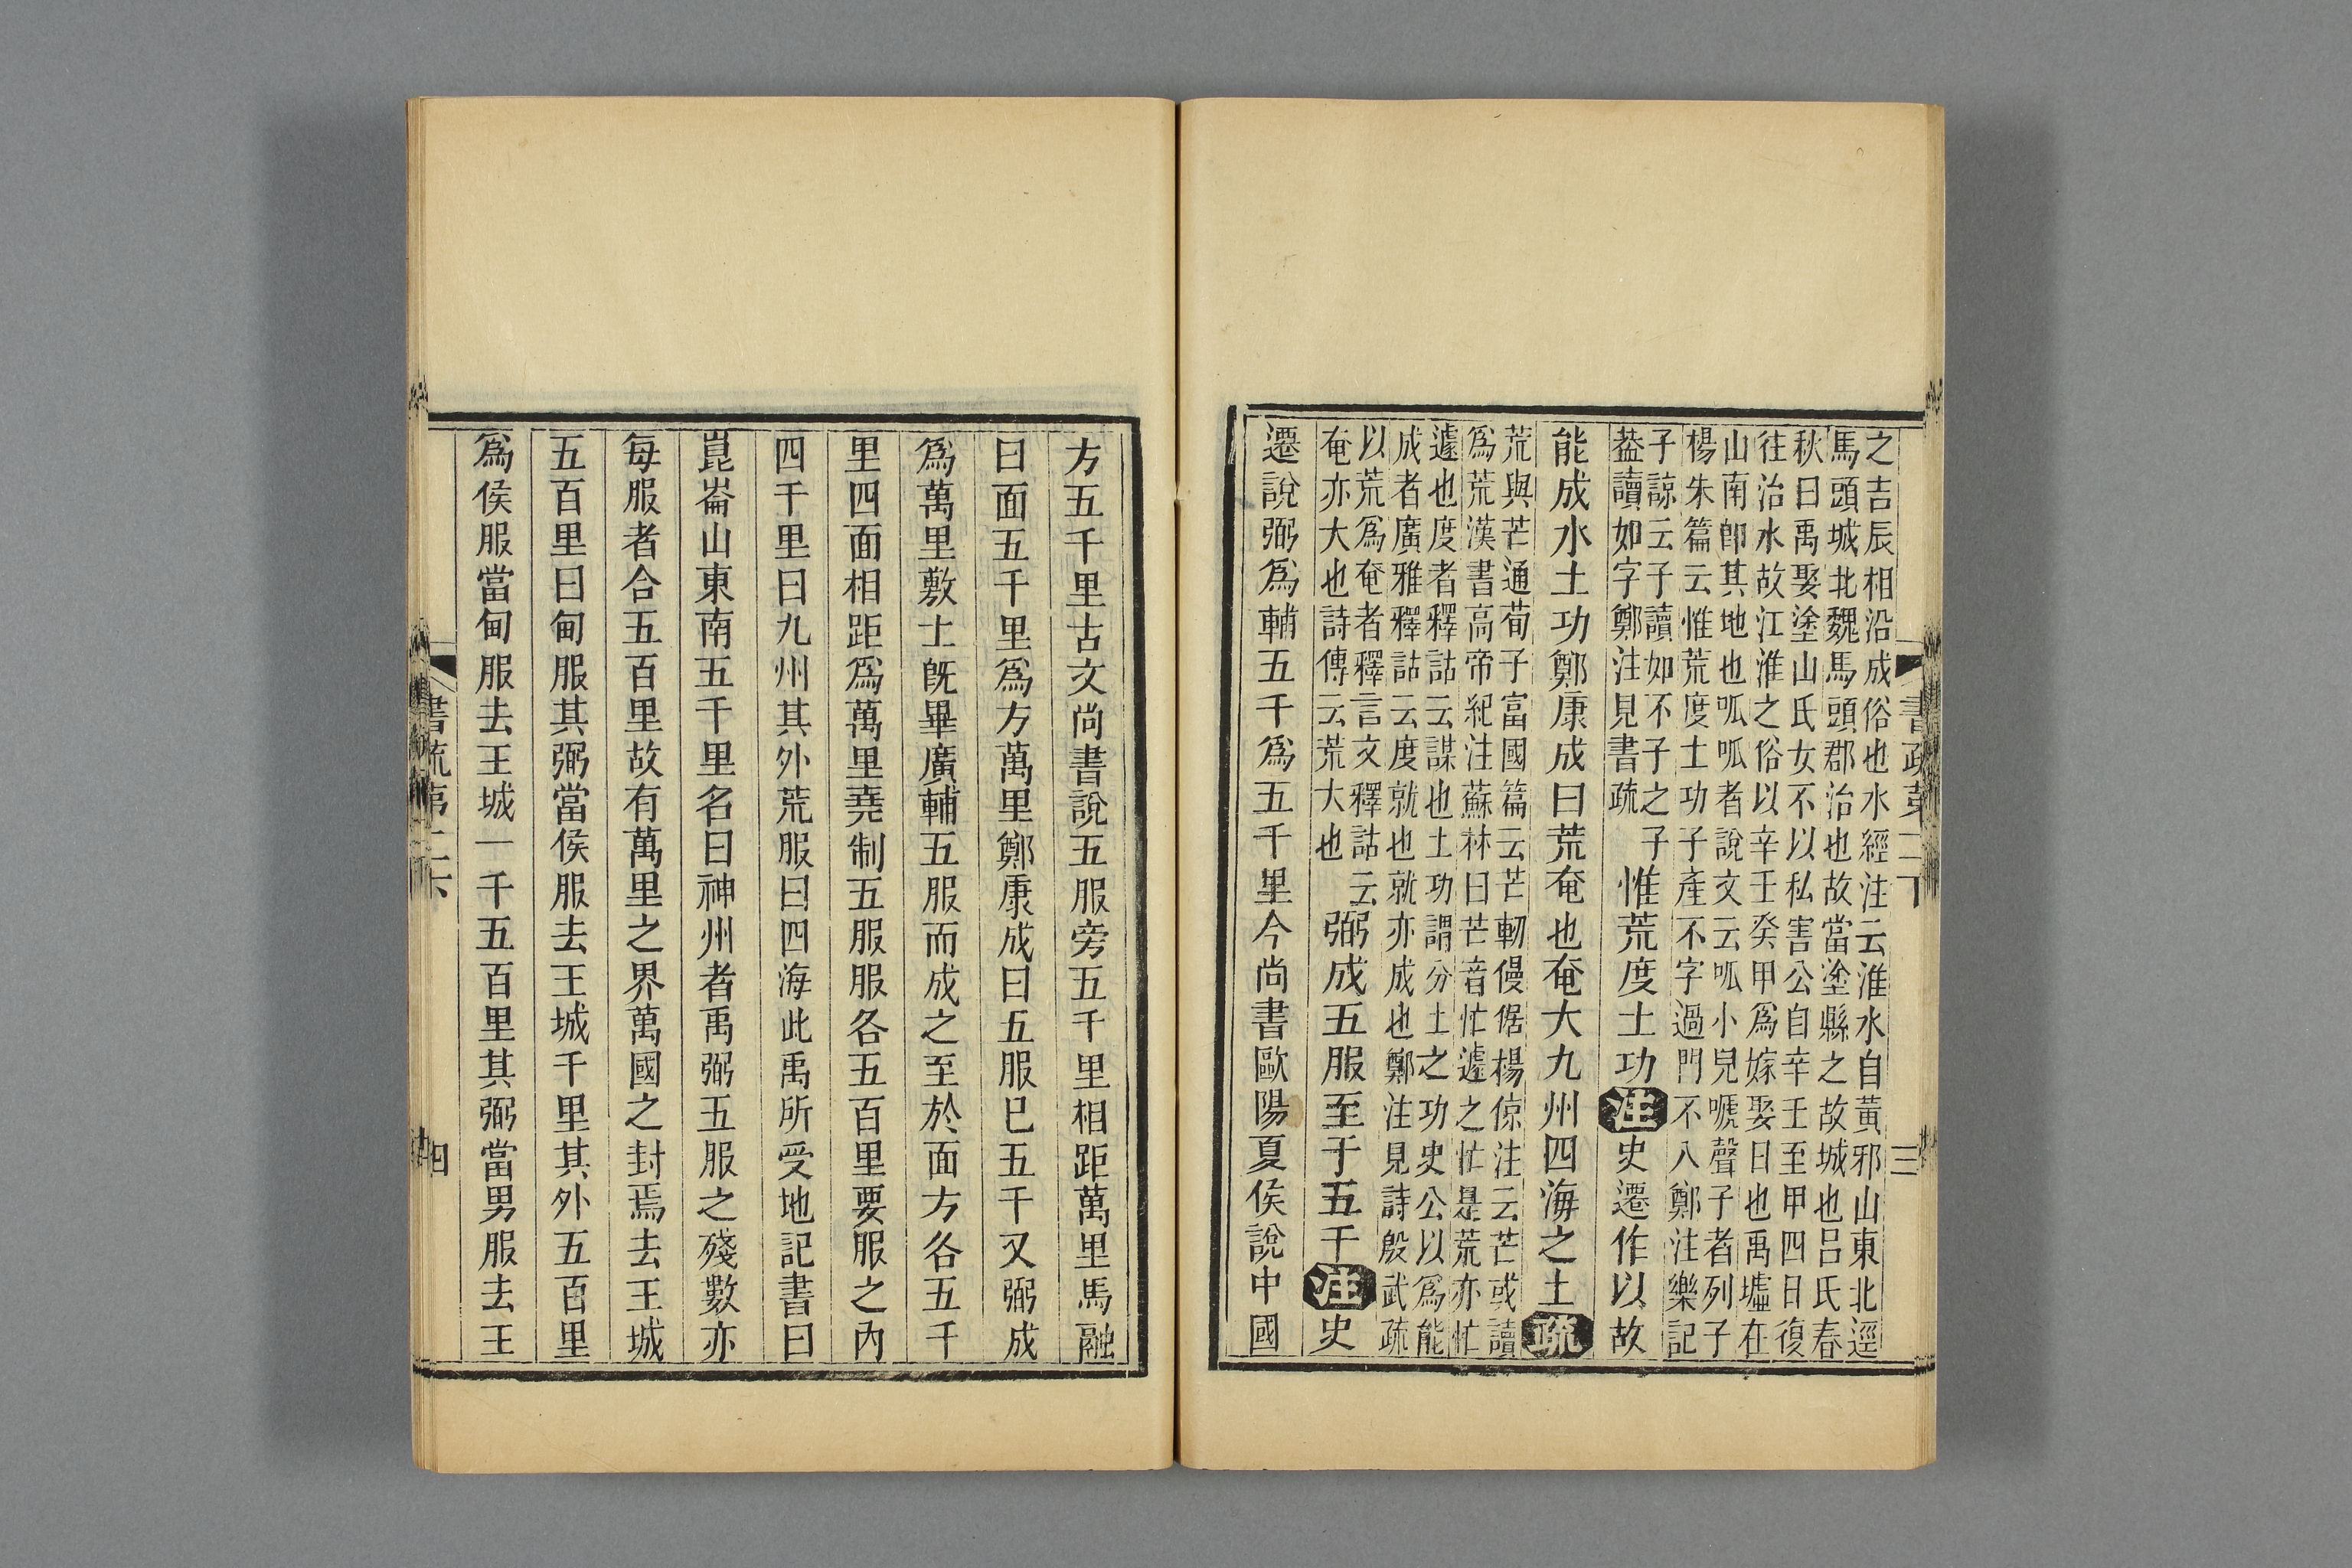 之吉辰相沿成俗也水經注云淮水自黃邪山東北逕
馬頭城北魏馬頭郡治也故當塗縣之故城也呂氏春
秋曰禹娶塗山氏女不以私害公自辛壬至甲四日復
往治水故江淮之俗以辛壬癸甲爲嫁娶日也禹墟在
山南卽其地也呱呱者說文云呱小兒嗁聲子者列子
楊朱篇云惟荒度土功子產不字過門不入鄭注樂記
子諒云子讀如不子之子
葢讀如字鄭注見書疏
惟荒度土功注史遷作以故
能成水土功鄭康成曰荒奄也奄大九州四海之土疏
荒與芒通荀子富國篇云芒軔僈楛楊倞注云芒或讀
爲荒漢書高帝紀注蘇林曰芒音忙遽之忙是荒亦忙
遽也度者釋詁云謀也土功謂分土之功史公以爲能
成者廣雅釋詁云度就也就亦成也鄭注見詩殷武疏
以荒爲奄者釋言文釋詁云
奄亦大也詩傳云荒大也
弼成五服至于五千注史
遷說弼爲輔五千爲五千里今尚書歐陽夏侯說中國
書疏第二下
三
方五千里古文尚書說五服旁五千里相距萬里馬融
曰面五千里爲方萬里鄭康成曰五服已五千又弼成
爲萬里敷土旣畢廣輔五服而成之至於面方各五千
里四面相距爲萬里堯制五服服各五百里要服之內
四千里曰九州其外荒服曰四海此禹所受地記書曰
崑崙山東南五千里名曰神州者禹弼五服之殘數亦
每服者合五百里故有萬里之界萬國之封焉去王城
五百里曰甸服其弼當侯服去王城千里其外五百里
爲侯服當甸服去王城一千五百里其弼當男服去王
書疏第二下
四